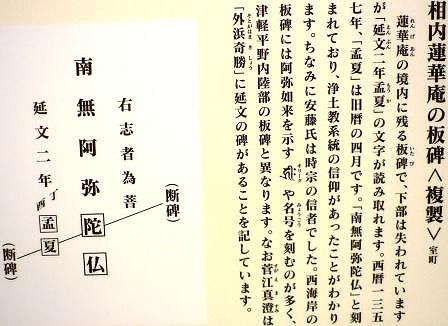 相内蓮華庵の板碑＜複製＞ 室町
蓮華庵の境内に残る板碑で、下部は失われています
が「延文二年孟夏」の文字が読み取れます。西暦一三五
七年、「孟夏」は旧暦の四月です。「南無阿弥陀仏」と刻
まれており、浄土教系統の信仰があったことがわかり
ます。ちなみに安藤氏は時宗の信者でした。西海岸の
板碑には阿弥如来を示す や名号を刻むのが多く、
津軽平野内陸部の板碑と異なります。なお菅江真澄は
「外浜奇勝」に延文の碑があることを記しています。
右志者為菩
南無阿弥陀仏
延文二年丁酉孟夏
(断碑)
(断碑)